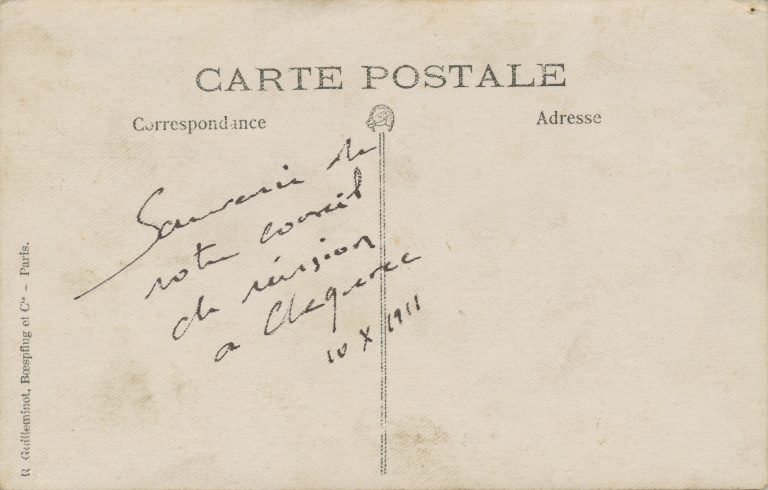 CARTE POSTALE
Correspondance
Adresse
Souvenir de
notre conseil
de révision
a Cleguerec
10 X 1911
R. Guilleminot, Bœspflug et Cie – Paris.